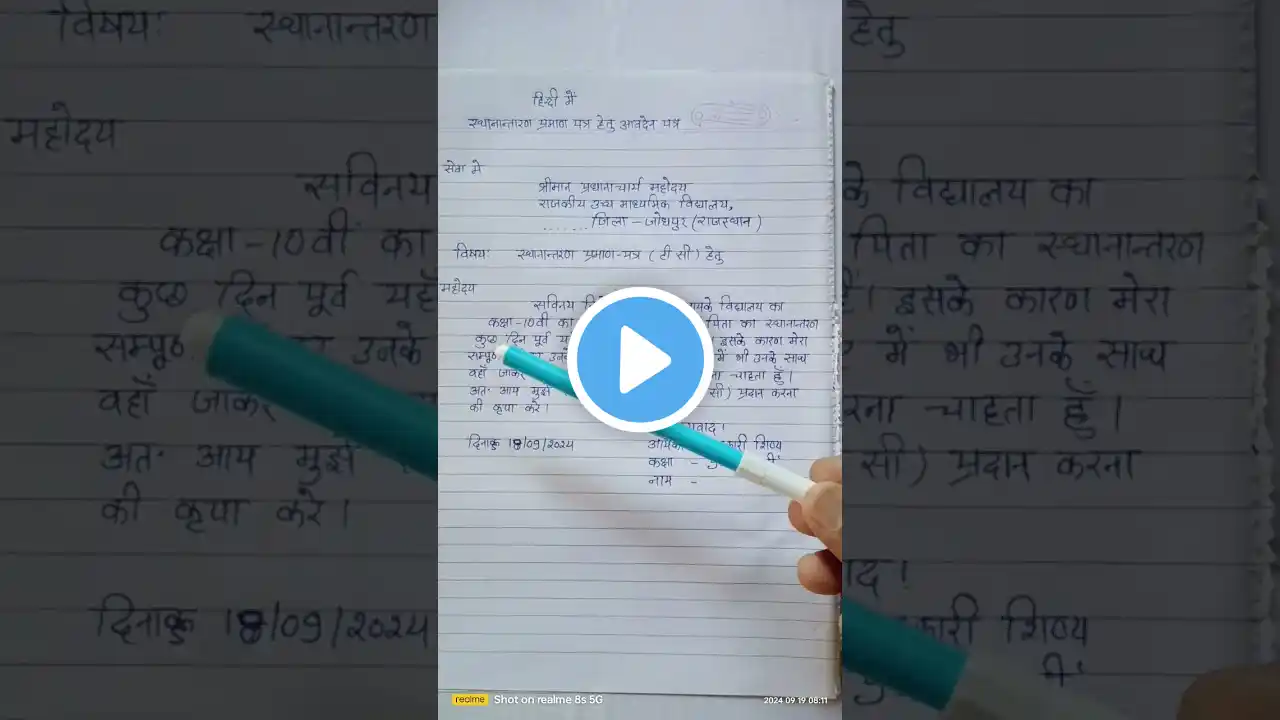 हिन्दी में
स्थानान्तारण प्रमाण पत्र हेतु आवदेन पत्र
सेवा मे
श्रीमान प्रधानाचार्य महोदय
राजकीय उच्च माध्यमिक विद्यालय,
....... जिला - जोधपुर (राजस्थान)
विषयः स्थानान्तरण प्रमाण-पत्र (टी सी) हेतु
महोदय
सविनय विद्यालय का
कक्षा-10वी का पिता का स्थानान्तरण
कुछ दिन पूर्व इसके कारण मेरा
में भी उनके साथ
वहाँ जाकर चाहता हुँ।
अतः आप मुझे सी) प्रदान करना
की कृपा करे।
दिनाकु 18/09/2024
शिष्य
कक्षा -
नाम -
realme Shot on realme 8s 5G
2024 09 19 08:11